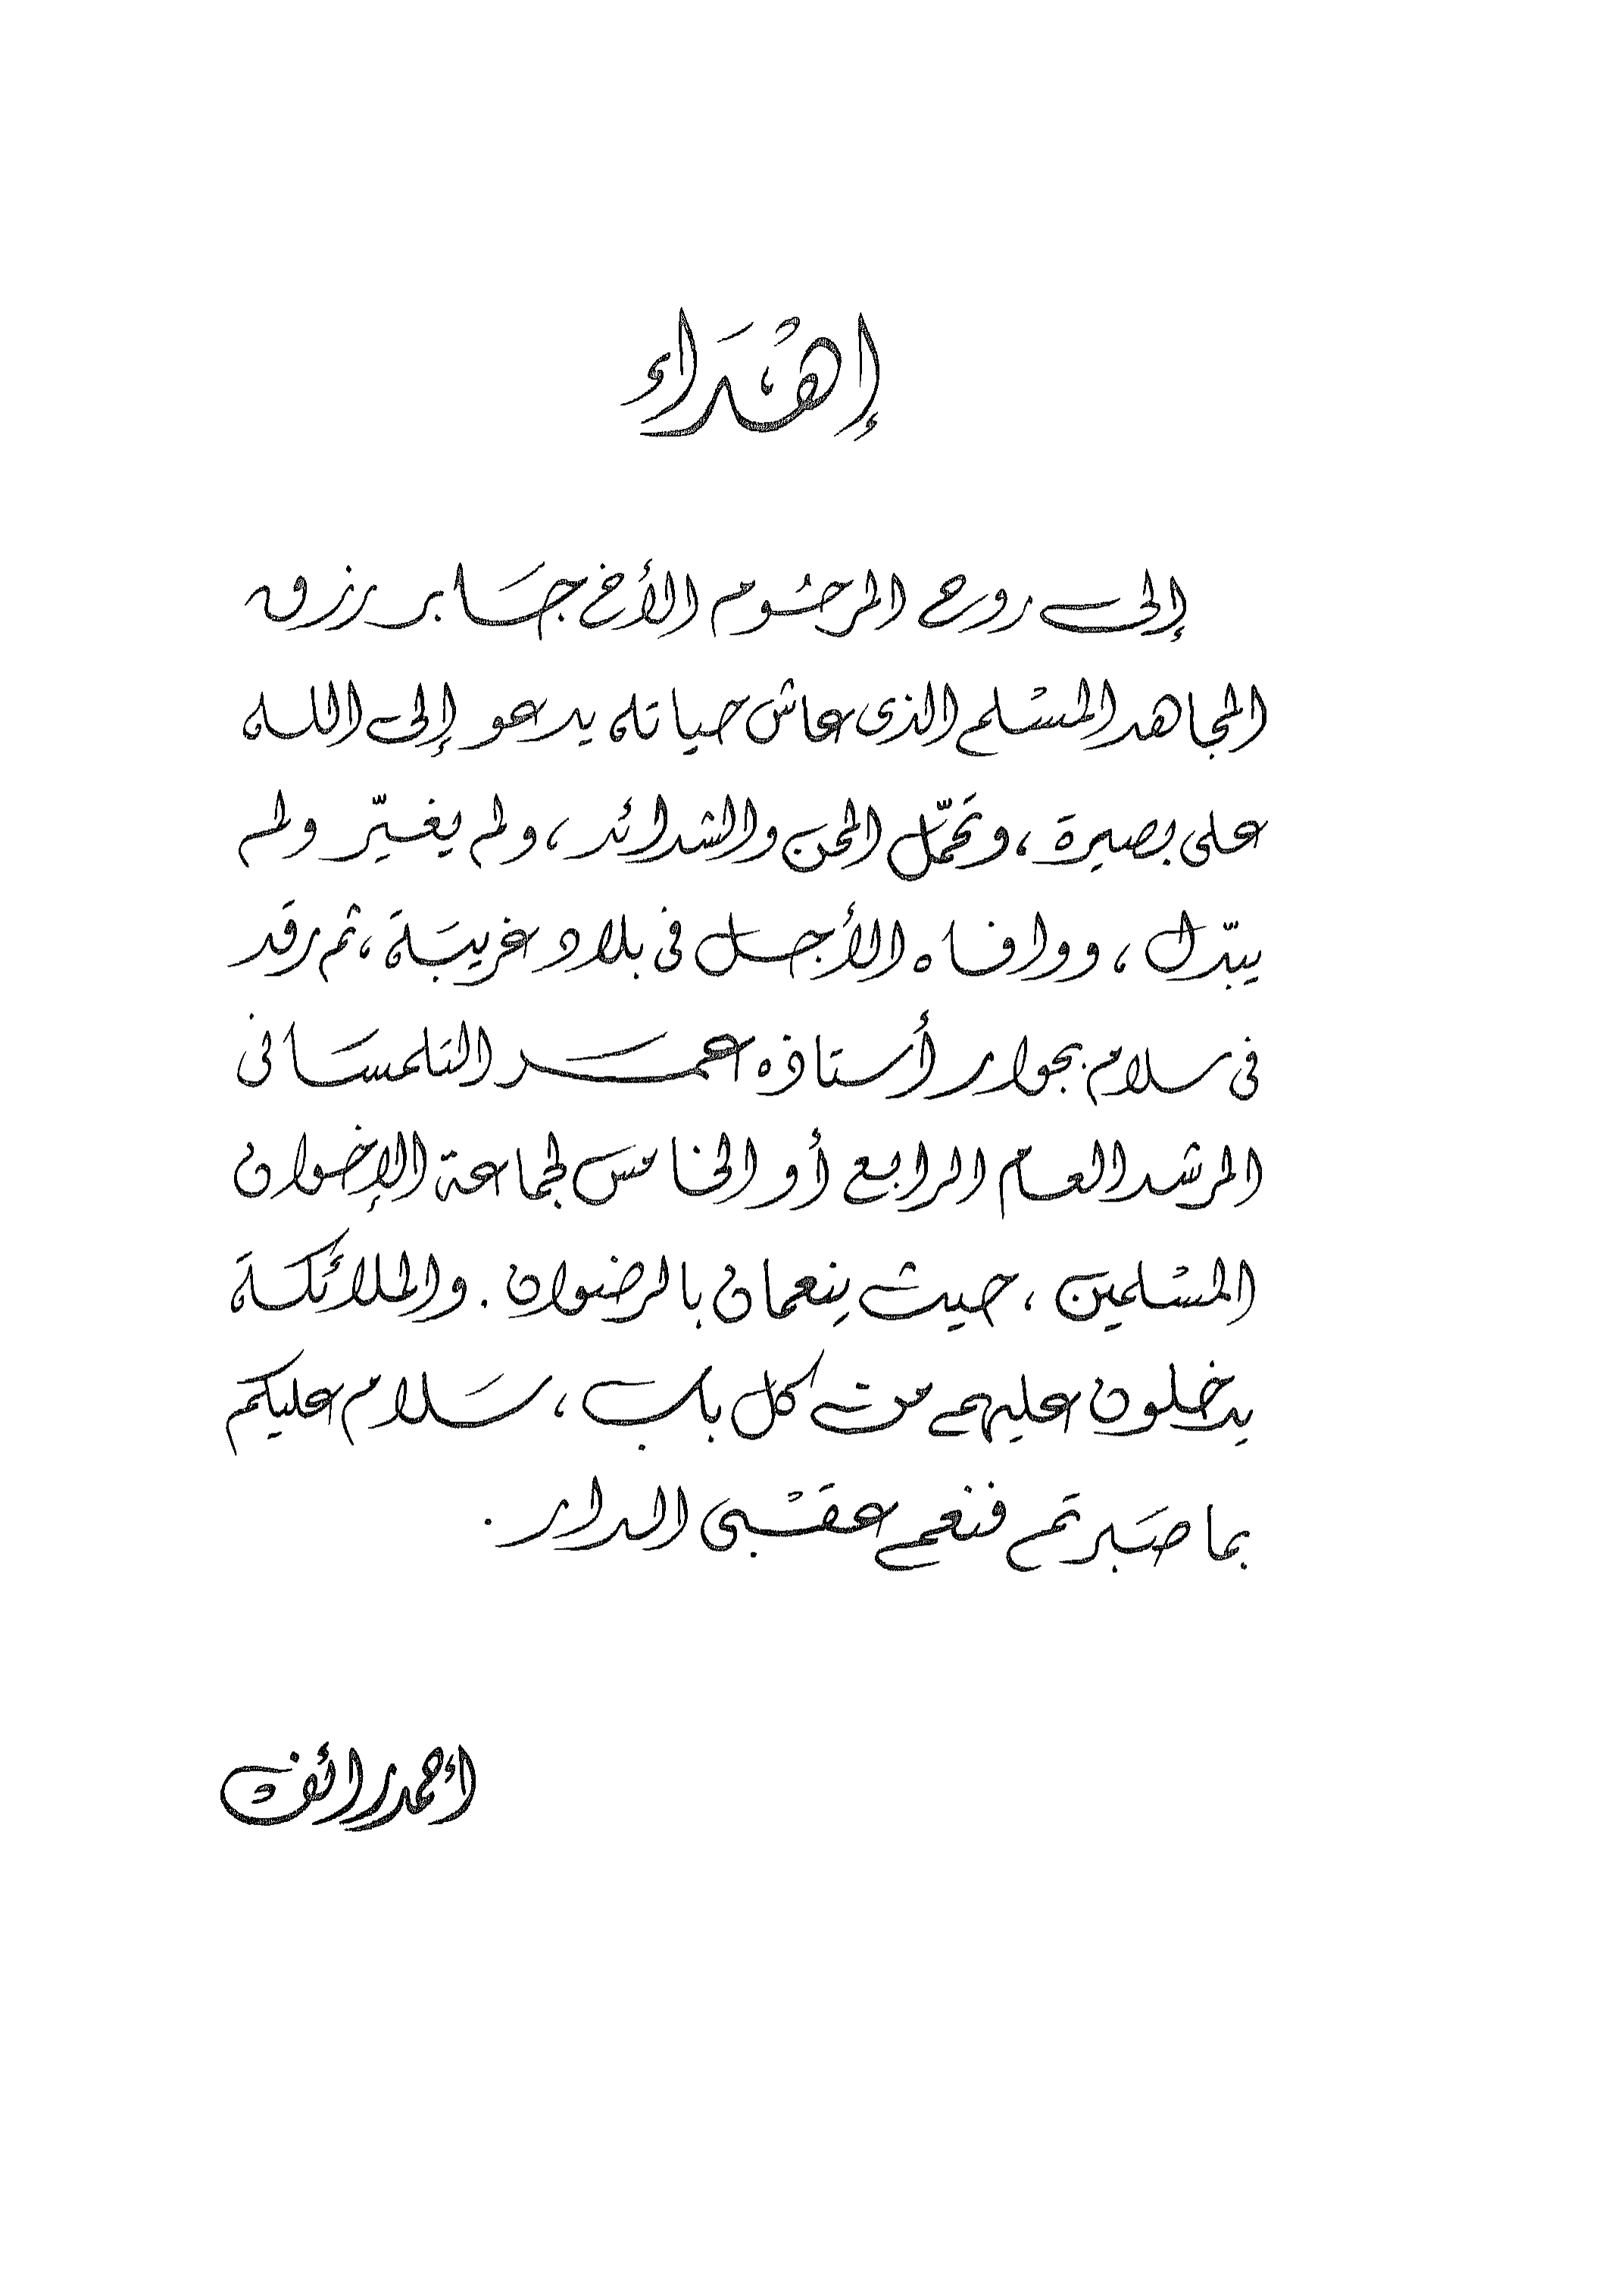 إهْدَاء
إلى روح المرحُوم الأخ جَابر رزق
المجاهد المسْلم الذى عاش حياته يدعو إلى الله
على بصيرة ، وتحَمّل المحن والشدائد ، ولم يغيّر ولم
يبّدل ، ووافاه الأجل فى بلاد غريبَة ، ثم رقد
فى سلام بجوار أستاذه عمر التلمسَانى
المرشد العام الرابع أو الخامس لجماعة الإخوان
المسْلمين ، حيث ينعمان بالرضوان . والملائكة
يدخلون عليهم من كل باب ، سَلام عليكم
بما صَبرتم فنعم عقْبى الدار .
أحمد رائف